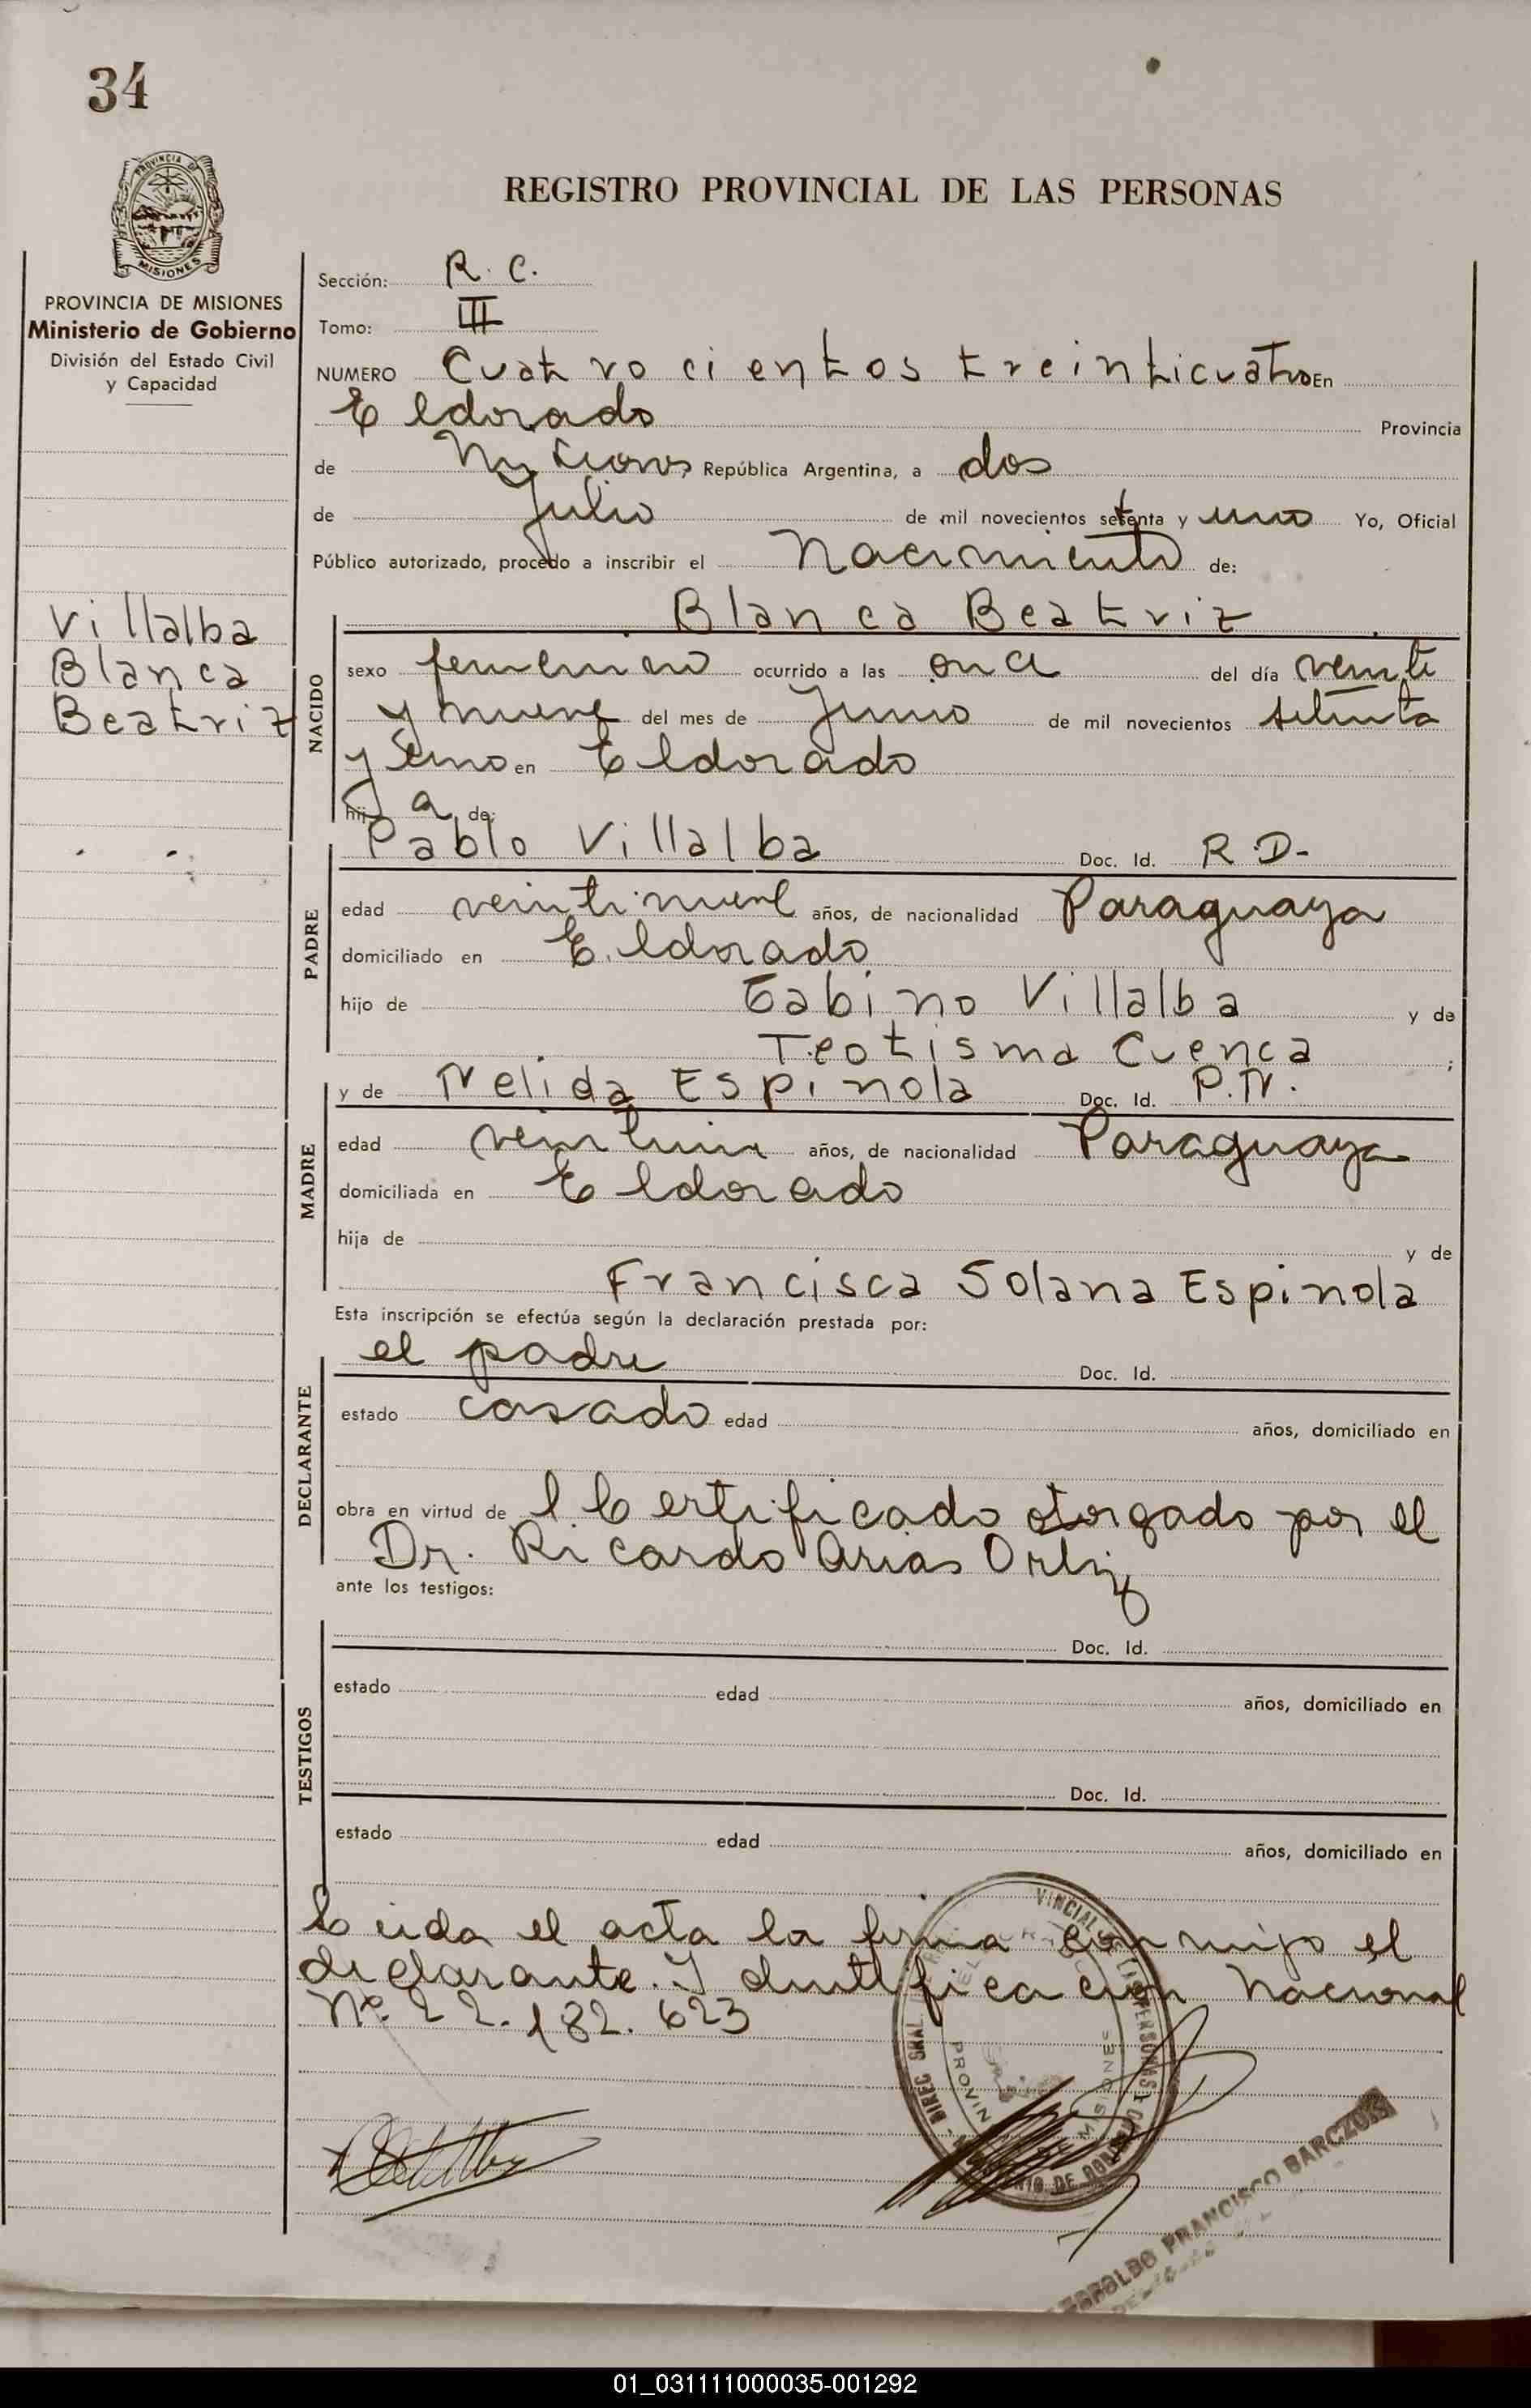 34
PROVINCIA DE
MISIONES
REGISTRO PROVINCIAL DE LAS PERSONAS
PROVINCIA DE MISIONES
Ministerio de Gobierno
División del Estado Civil
y Capacidad
Villalba
Blanca
Beatriz
Sección: R. C.
Tomo: III
NUMERO Cuatrocientos treinticuatro En
Eldorado Provincia
de Misiones República Argentina, a dos
de Julio de mil novecientos setenta y uno Yo, Oficial
Público autorizado, procedo a inscribir el Nacimiento de:
Blanca Beatriz
NACIDO
sexo femenino ocurrido a las once del día veinti
y nueve del mes de Junio de mil novecientos setenta
y uno en Eldorado
hij a de:
PADRE
Pablo Villalba Doc. Id. R.D-
edad veintinueve años, de nacionalidad Paraguaya
domiciliado en Eldorado
hijo de Gabino Villalba y de
Teotisma Cuenca ;
MADRE
y de Nelida Espinola Doc. Id. P.N.
edad años, de nacionalidad Paraguaya
domiciliada en Eldorado
hija de y de
Francisca Solana Espinola
Esta inscripción se efectúa según la declaración prestada por:
DECLARANTE
el padre Doc. Id.
estado casado edad años, domiciliado en
obra en virtud de l Certificado otorgado por el
Dr. Ricardo Arias Ortiz
ante los testigos:
TESTIGOS
Doc. Id.
estado edad años, domiciliado en
Doc. Id.
estado edad años, domiciliado en
Leida el acta la firma conmigo el
declarante. Identificacion Nacional
Nº 22.182.623
DIREC. GRAL. VINCIAL PERSONAS
PROVIN MISIONES
FRANCISCO BARCZUK
01_031111000035-001292